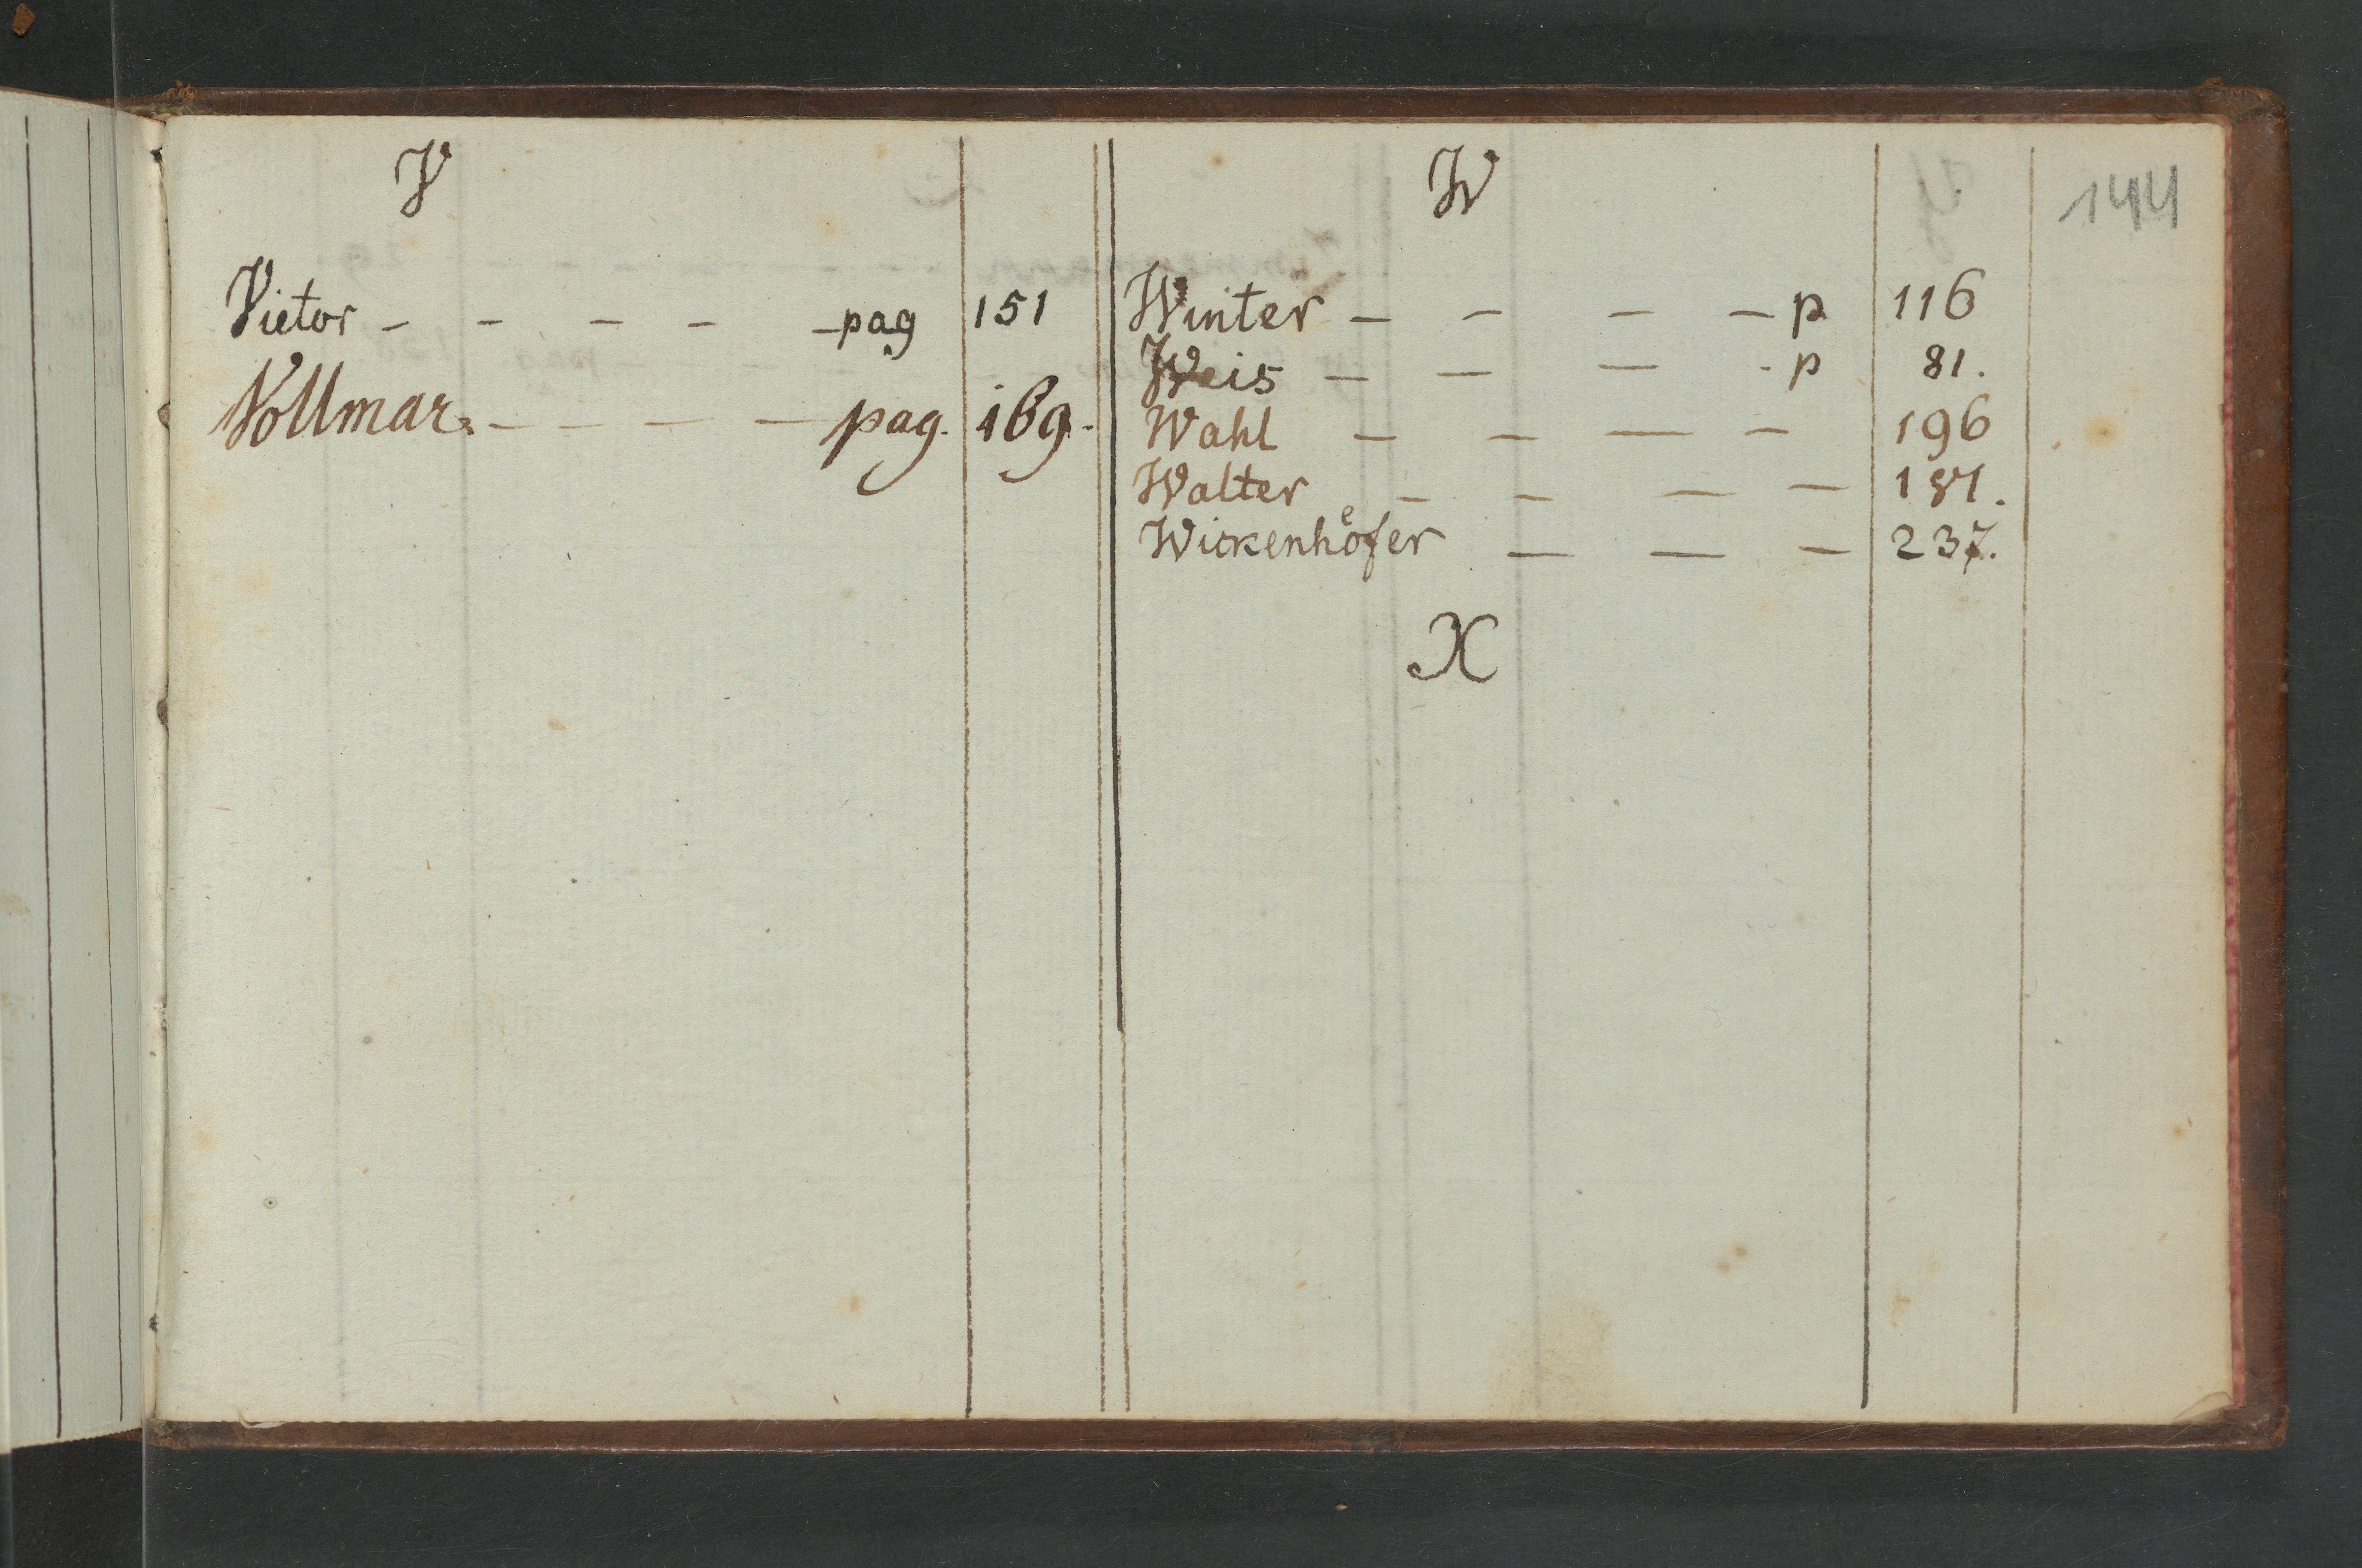 144
V
Vietor - - - - - pag 151
Vollmar. - - - - pag. 169.
W
Winter - - - - p 116
Weis - - - - p 81.
Wahl - - - - 196
Walter - - - -
Wickenhoͤfer - - - 237.
X